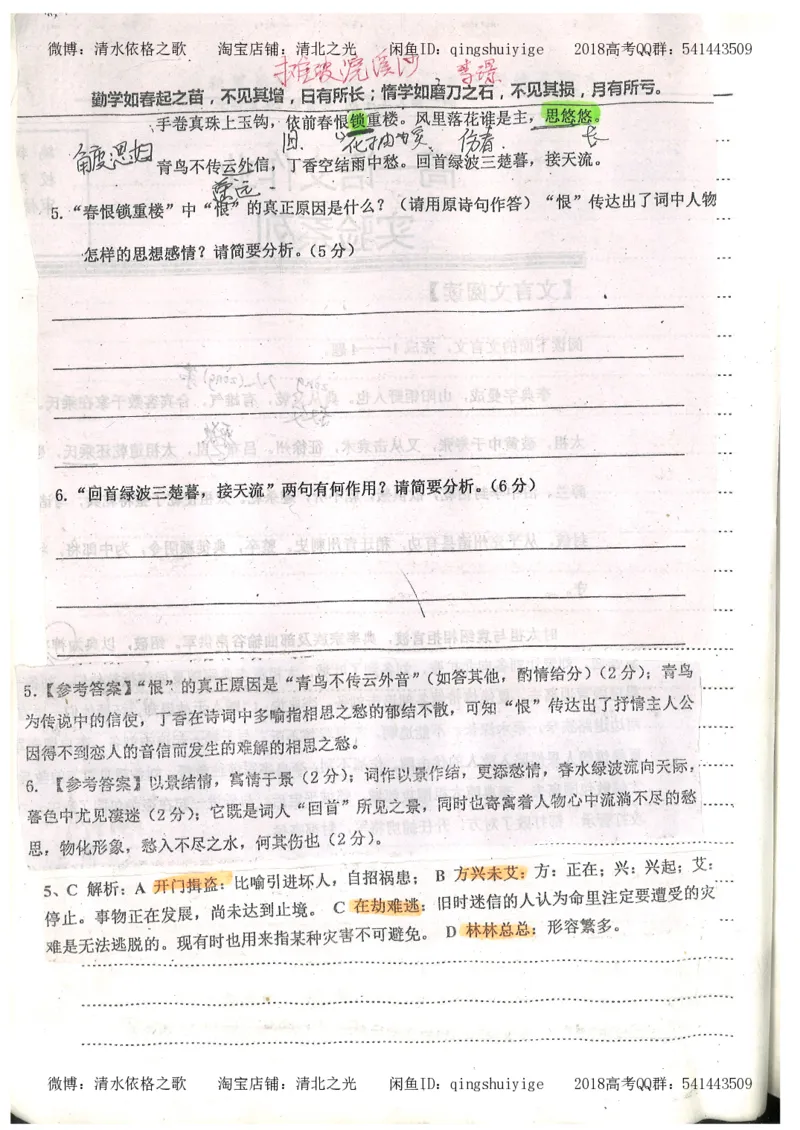 微博：清水依格之歌 淘宝店铺：清北之光 闲鱼ID：qingshuiyige 2018高考QQ群：541443509
摊破浣溪沙 李璟
勤学如春起之苗，不见其增，日有所长；惰学如磨刀之石，不见其损，月有所亏。
手卷真珠上玉钩，依前春恨锁重楼。风里落花谁是主，思悠悠。
因 伤春 长
青鸟不传云外信，丁香空结雨中愁。回首绿波三楚暮，接天流。
遥远
5.“春恨锁重楼”中“恨”的真正原因是什么？（请用原诗句作答）“恨”传达出了词中人物
怎样的思想感情？请简要分析。（5分）
6.“回首绿波三楚暮，接天流”两句有何作用？请简要分析。（6分）
5.【参考答案】“恨”的真正原因是“青鸟不传云外音”（如答其他，酌情给分）（2分）；青鸟
为传说中的信使，丁香在诗词中多喻指相思之愁的郁结不散，可知“恨”传达出了抒情主人公
因得不到恋人的音信而发生的难解的相思之愁。
6. 【参考答案】以景结情，寓情于景（2分）；词作以景作结，更添愁情，春水绿波流向天际，
暮色中尤见凄迷（2分）；它既是词人“回首”所见之景，同时也寄寓着人物心中流淌不尽的愁
思，物化形象，愁入不尽之水，何其伤也（2分）。
5、C 解析：A 开门揖盗：比喻引进坏人，自招祸患； B 方兴未艾：方：正在；兴：兴起；艾：
停止。事物正在发展，尚未达到止境。 C 在劫难逃：旧时迷信的人认为命里注定要遭受的灾
难是无法逃脱的。现有时也用来指某种灾害不可避免。 D 林林总总：形容繁多。
微博：清水依格之歌 淘宝店铺：清北之光 闲鱼ID：qingshuiyige 2018高考QQ群：541443509